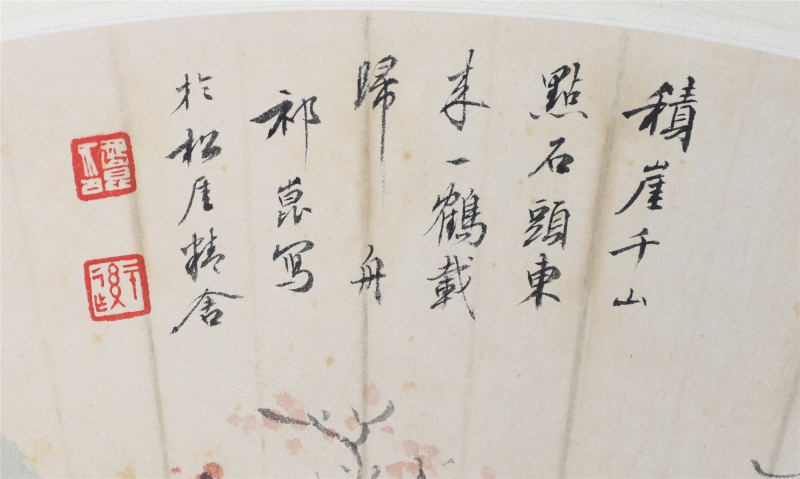 積崖千山
點石頭東
来一鶴載
歸舟
祁崑写
於松崖精舍